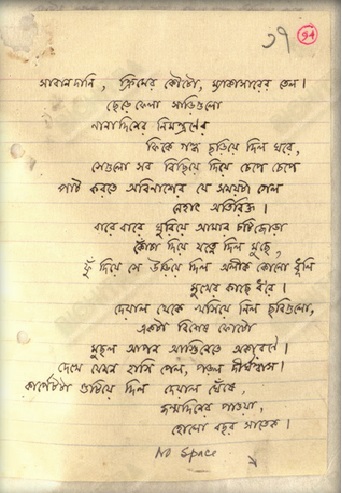 ৩৭ ৩৭
সাবানদানি, ক্রিমের কৌটো, ম্যাকাসারের তেল।
ছেড়ে ফেলা শাড়িগুলো
নানাদিনের নিমন্ত্রণের
ফিকে গন্ধ ছড়িয়ে দিল ঘরে,
সেগুলো সব বিছিয়ে দিয়ে চেপে চেপে
পাট করতে অবিনাশের যে সময়টা গেল
নেহাৎ অতিরিক্ত।
বারে বারে ঘুরিয়ে আমার চটিজোড়া
কোঁচা দিয়ে যত্নে দিল মুছে,
ফুঁ দিয়ে সে উড়িয়ে দিল অলীক কোনো ধূলি
মুখের কাছে ধরে।
দেয়াল থেকে খসিয়ে নিল ছবিগুলো,
একটা বিশেষ ফোটো
মুছল আপন আস্তিনেতে অকারণে।
দেখে যেমন হাসি পেল, পড়ল দীর্ঘশ্বাস।
কার্পেটটা গুটিয়ে দিল দেয়াল ঘেঁষে,
জন্মদিনের পাওয়া,
হোলো বছর সাতেক।
No Space